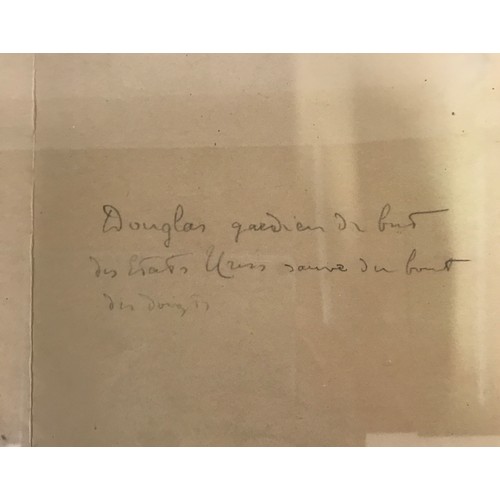 Douglas gardien de but
des Etats Unis sauve du bout
des doigts